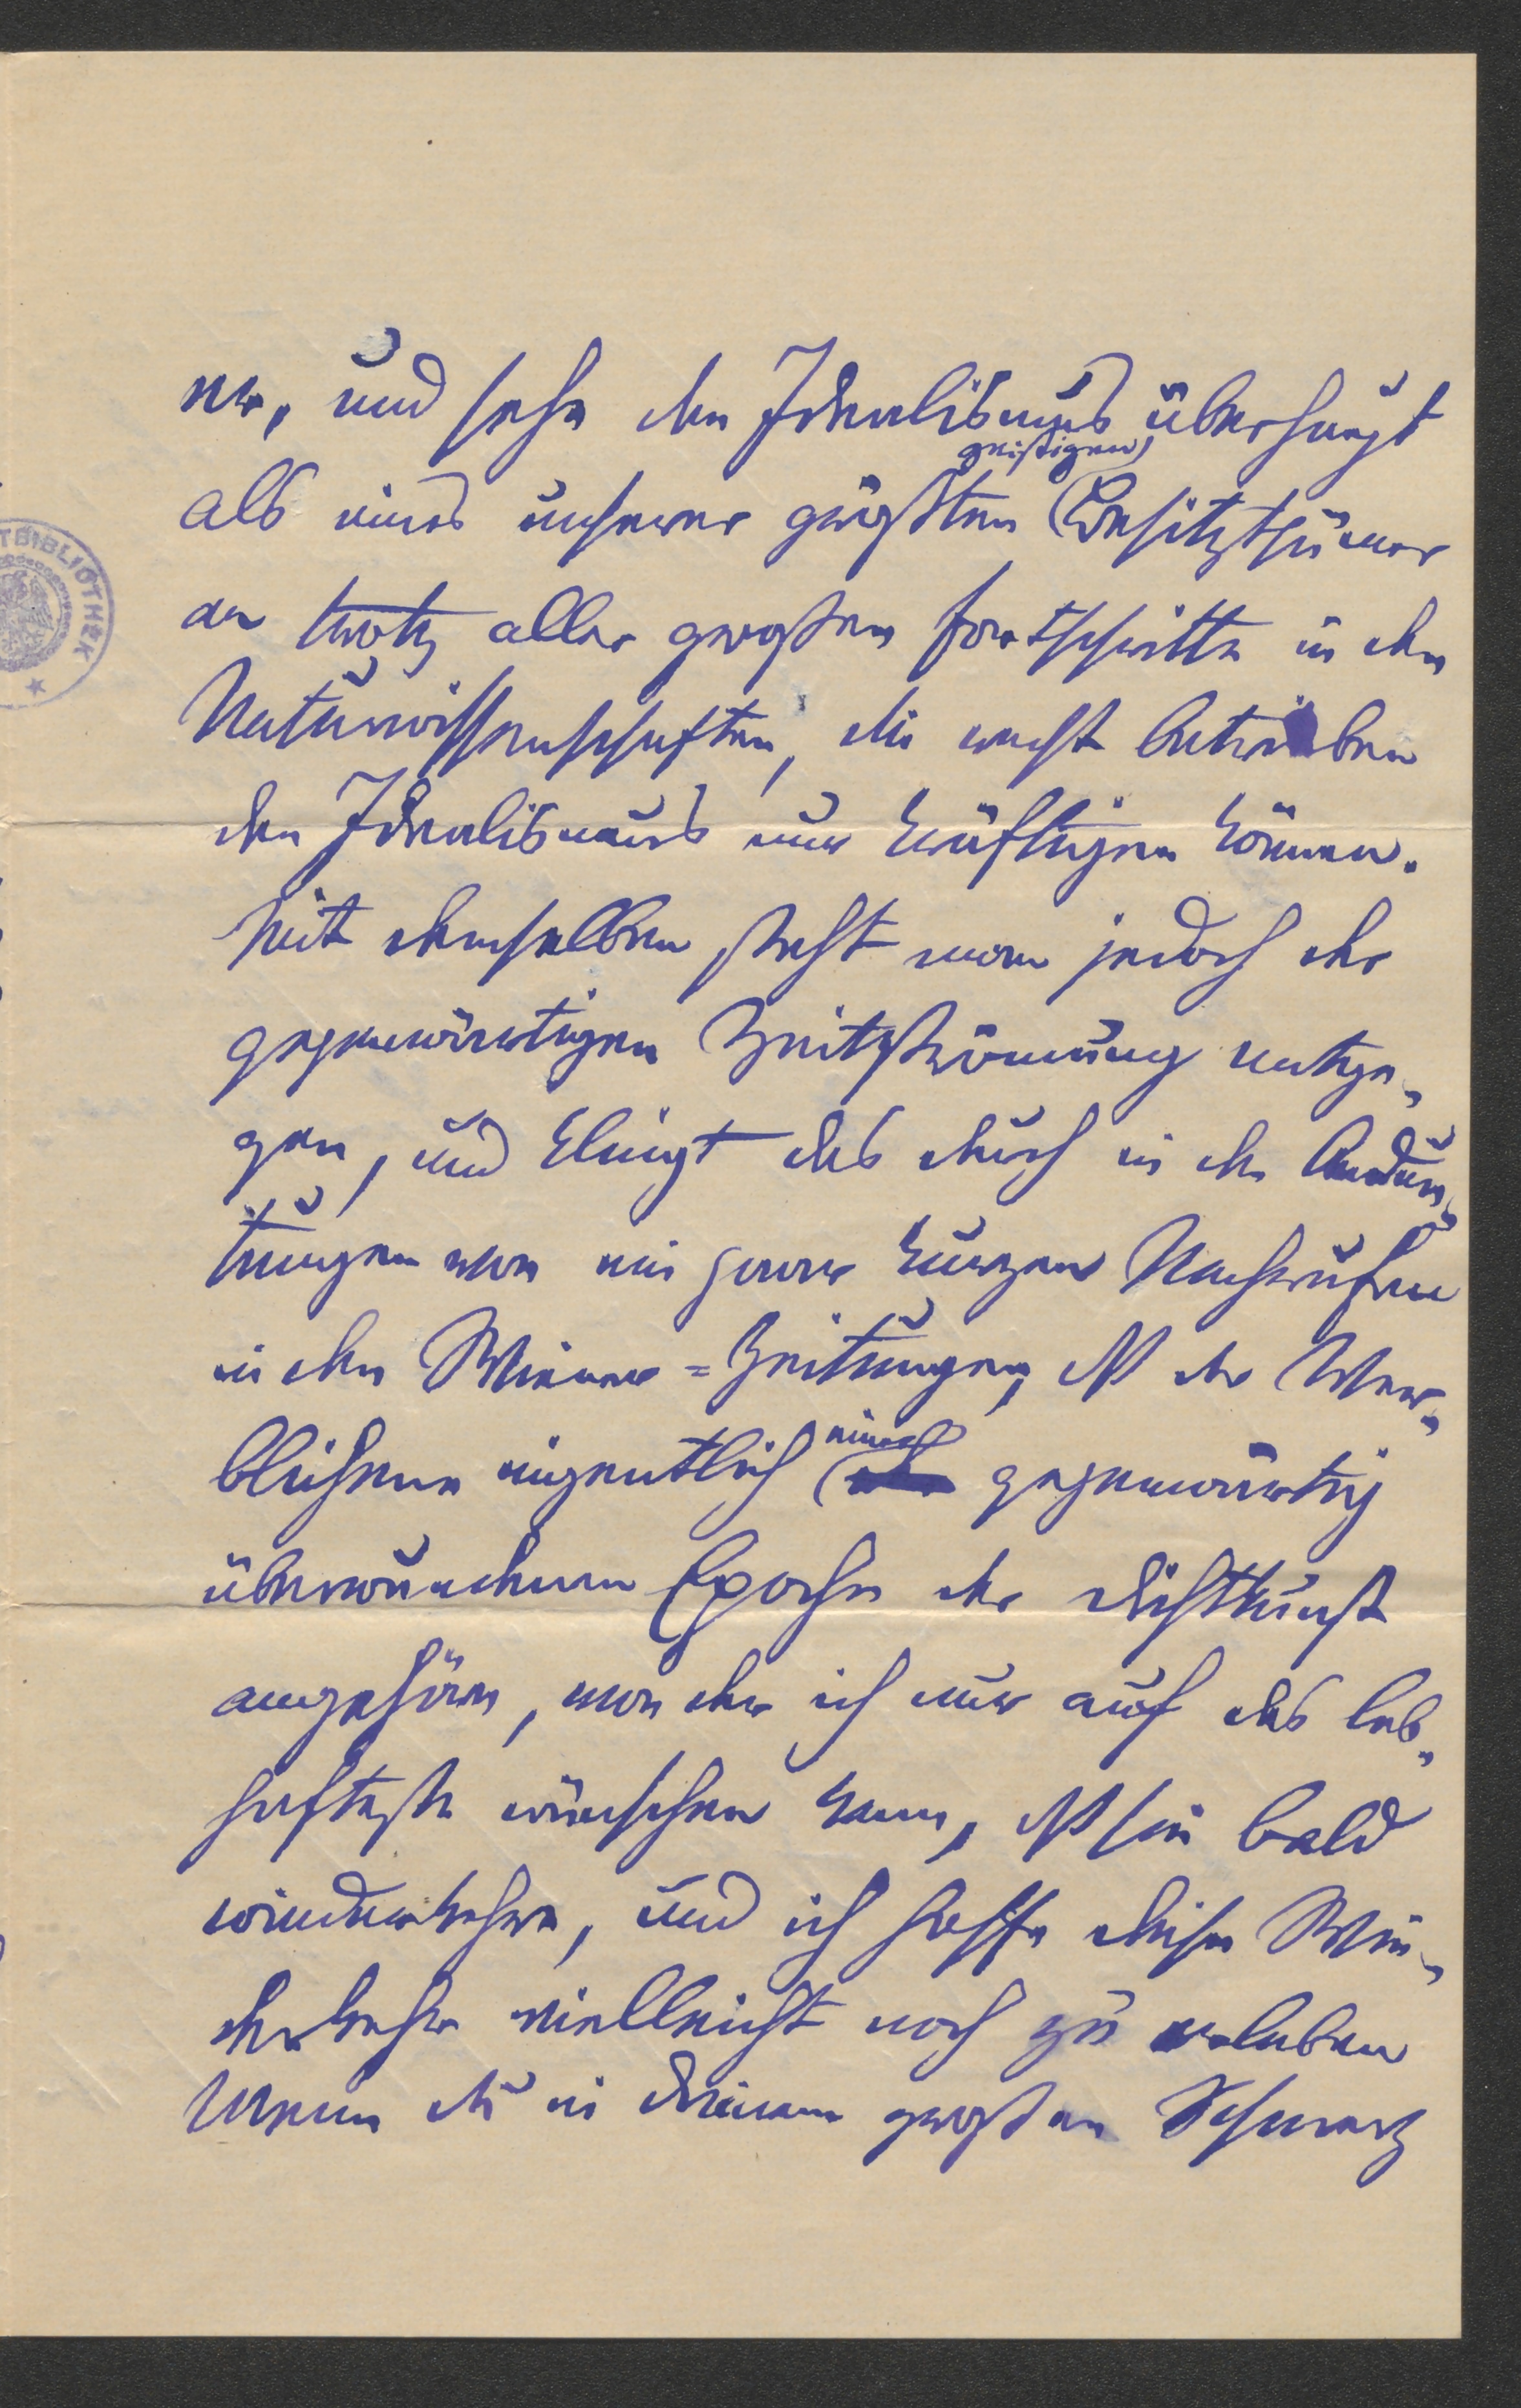 ner, und sehe den Idealismus überhaupt
geistigen
als eines unserer größten Besitzthümer
an trotz aller großen Fortschritte in den
Naturwissenschaften, die recht betrieben
den Idealismus nur kräftigen können.
Mit demselben steht man jedoch der
gegenwärtigen Zeitströmung entge„
gen, und klingt das durch in den Andeu„
tungen von ein paar kurzen Nachrufen
in den Wiener=Zeitungen, daß der Ver„
einer
blichene eigentlich gegenwärtig
überwundenen Epoche der Dichtkunst
angehöre, von der ich nur auf das leb„
hafteste wünschen kann, daß sie bald
wiederkehre, und ich hoffe diese Wie„
derkehr vielleicht noch zu erleben
Wenn Du in Deinem großen Schmerz
TBIBLIOTHEK